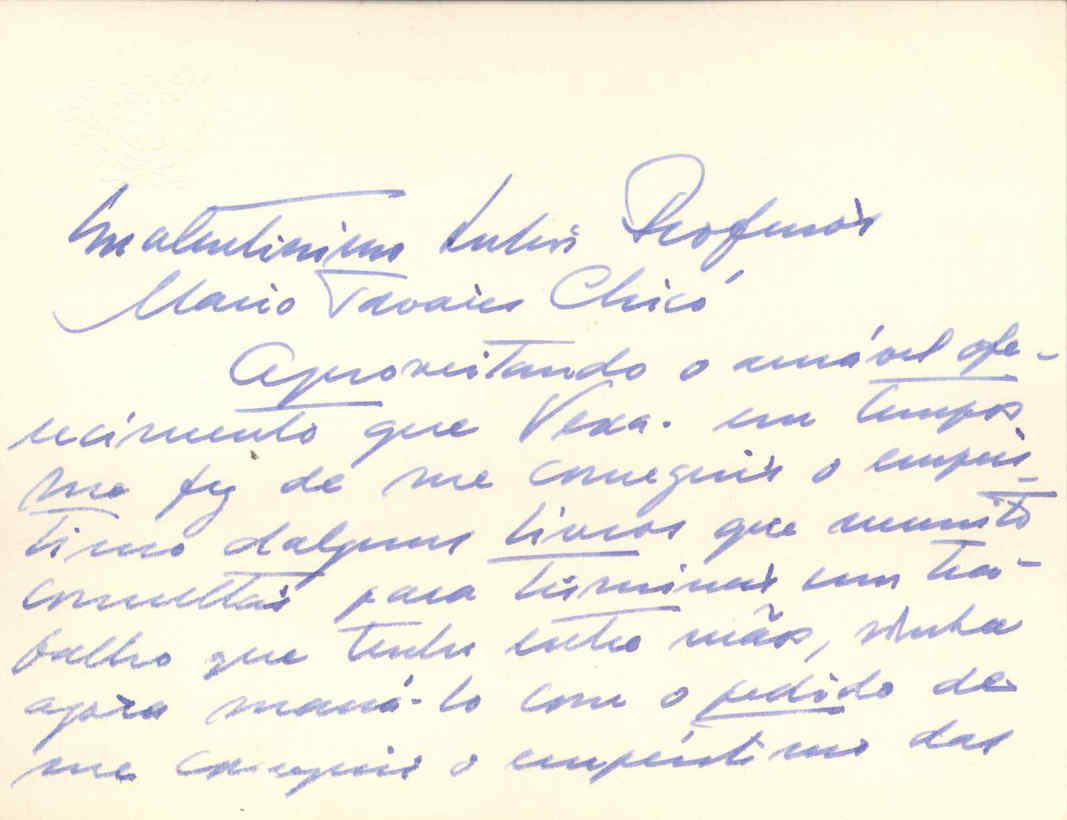 Senhor Professor
Mario Tavares Chicó
Aproveitando o amável ofe-
recimento que Vexa. em tempos
me fez de me conseguir o emprés-
timo dalguns livros que necessito
consultar para terminar um tra-
balho que tenho entre mãos, vinha
agora maçá-lo com o pedido de
me conseguir o empréstimo das